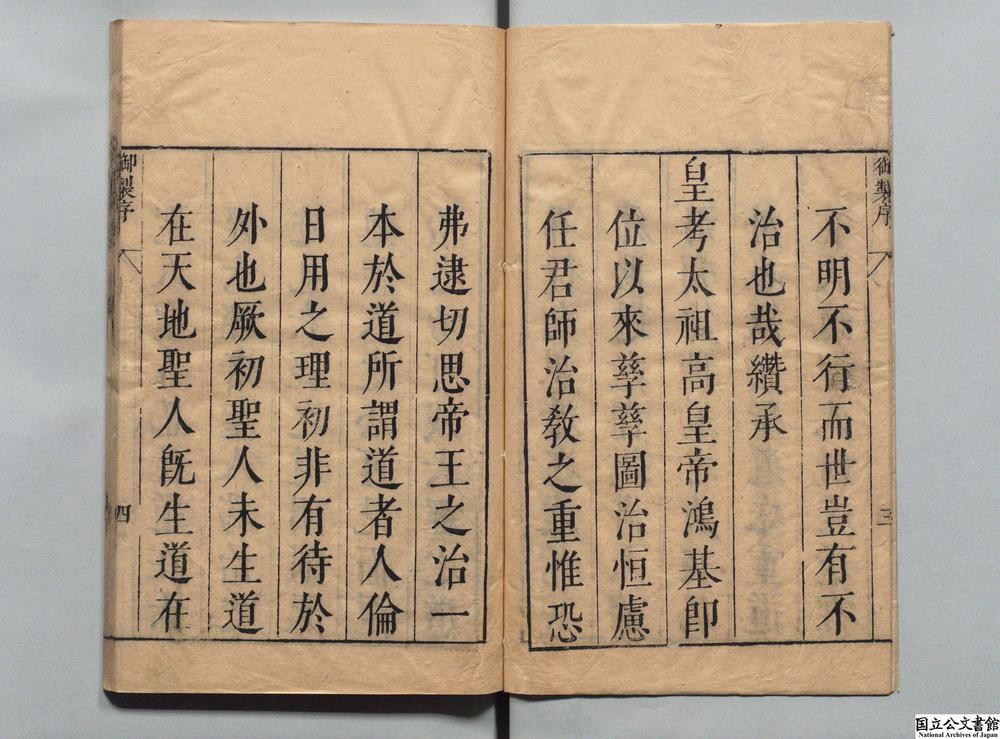 御製序
三
不明不行而世豈有不
治也哉纘承
皇考太祖高皇帝鴻基卽
位以來孳孳圖治恒慮
任君師治教之重惟恐
弗逮切思帝王之治一
本於道所謂道者人倫
日用之理初非有待於
外也厥初聖人未生道
在天地聖人旣生道在
御製序
四
国立公文書館
National Archives of Japan